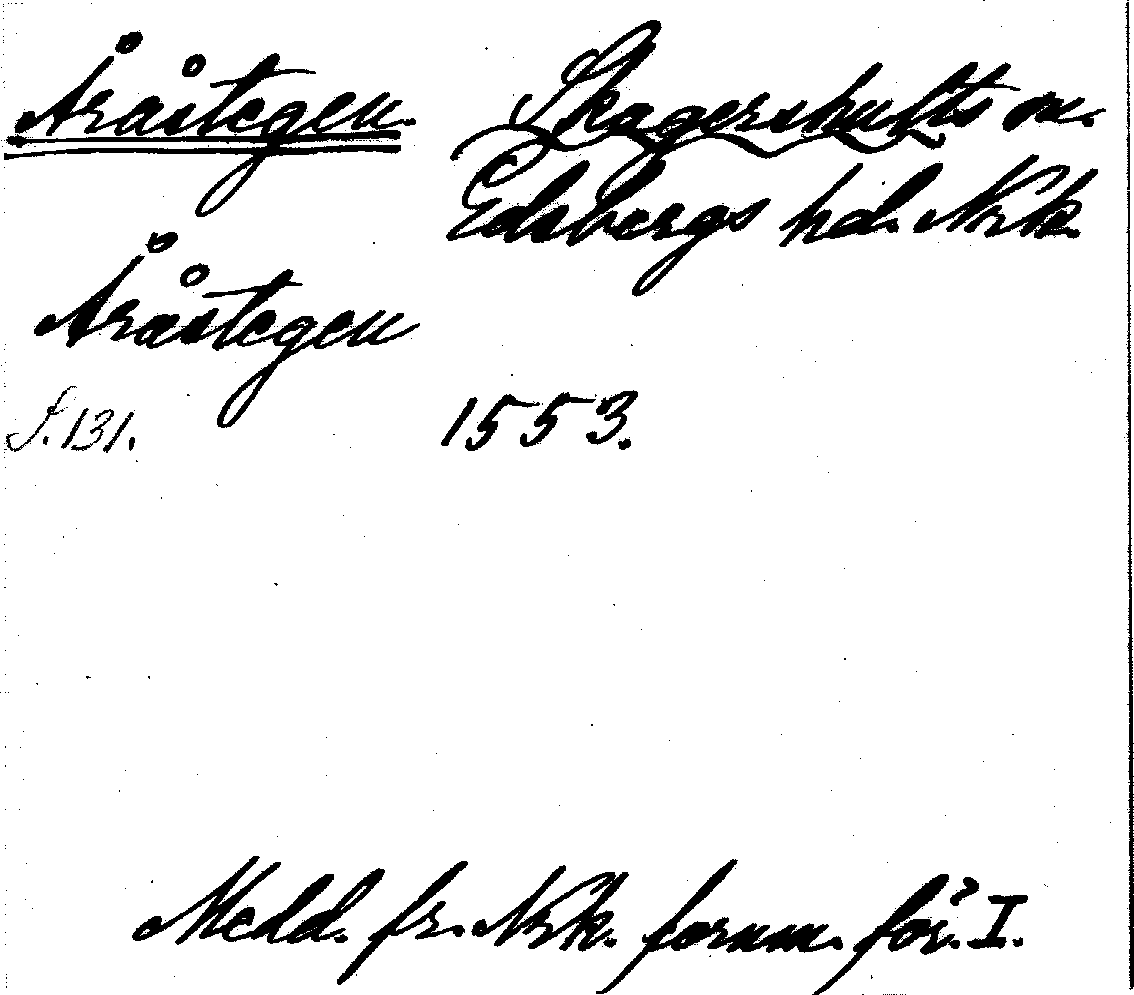 Åråstegen. Skagershults sn.
Edsbergs hd. Nrk.
Åråstegen
S. 131. 1553.
Medd. fr. Nrk. fornm. för. I.